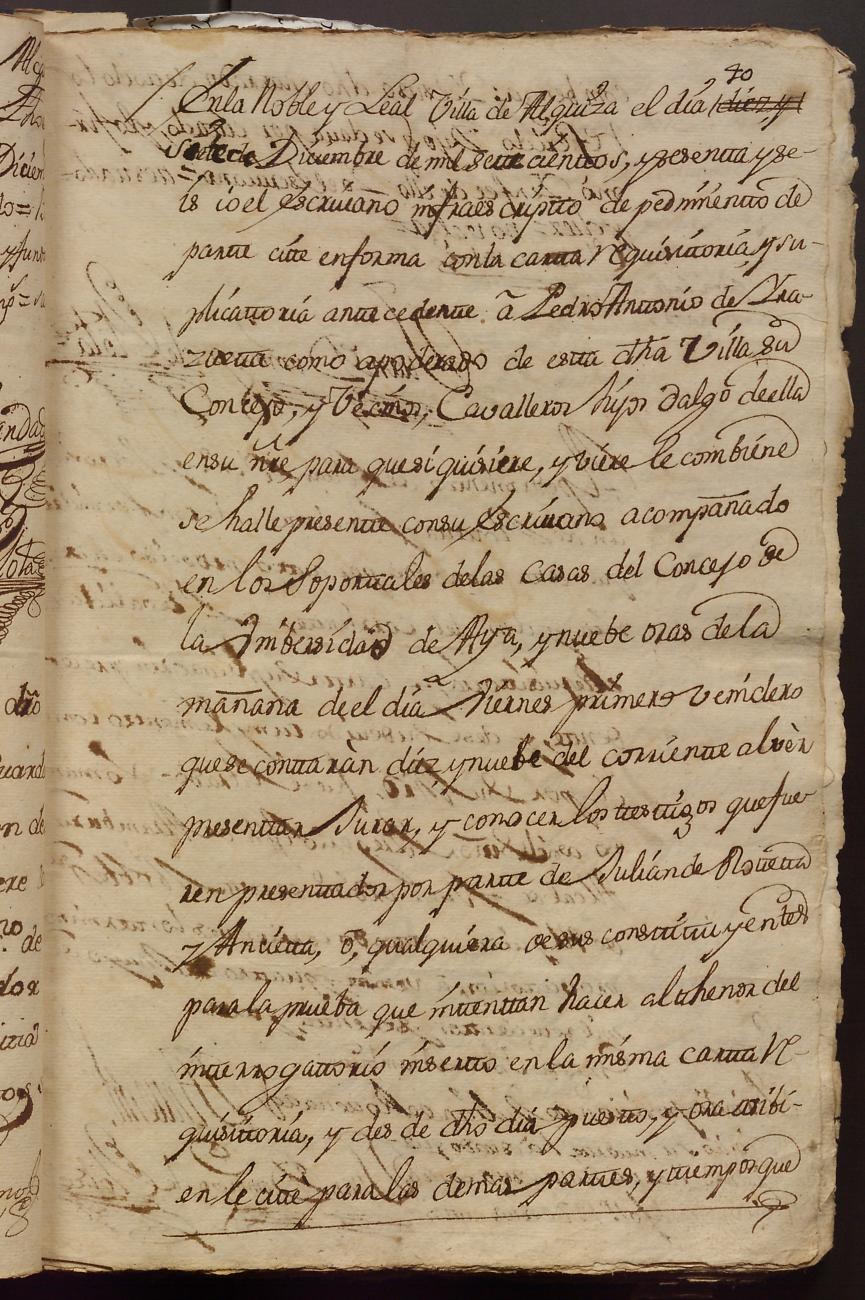 40
En la Noble y Leal Villa de Alquiza el dia diez y
siete de Diciembre de mil settecientos, y sesenta y se-
is io el escrivano infraescriptto de pedimientto de
partte citte en forma con la cartta Requisittoria, y su-
plicattoria antte cedentte â Pedro Anttonio de Yra-
zuetta como apoderado de estta dha Villa su
Concejo, y Vecinos, Cavalleros hijos dalgo de ella
en su nre para que si quisiere, y viere le combiene
se halle presentte con su Escrivano acompañado
en los Soporttales de las Casas del Concejo de
la Vnibersidad de Aya, y nuebe oras de la
mañana de el dia Viernes primero venidero
que se conttaran diez y nuebe del corrientte al ver
presenttar Jurar, y conocer los ttesttigos que fue-
ren presenttados por partte de Julian de Rouetta
y Ancietta, ô, qualquiera de sus consttittuyenttes
para la prueba que inttenttan hacer al thenor del
intterrogattorio inserto en la misma cartta Re-
quisittoria, y des de dho dia puestto, y ora arribi-
en le citte para las demas parttes, y ttiempos que